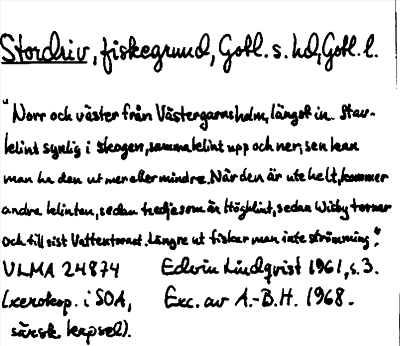 Stordriv, fiskegrund, Gotl. s. hd, Gotl. l.
"Norr och väster från Västergarnsholm, längst in. Stav-
klint synlig i skogen, samma klint upp och ner, sen kan
man ha den ut mer eller mindre. När den är ute helt, kommer
andra klinten, sedan tredje som är Högklint, sedan Wisby tornar
och till sist Vattentornet. Längre ut fisker man inte strömming."
ULMA 24874 Edvin Lindqvist 1961, s. 3.
(xerokop. i SOA, Exc. av A.-B.H. 1968.
särsk. kapsel).